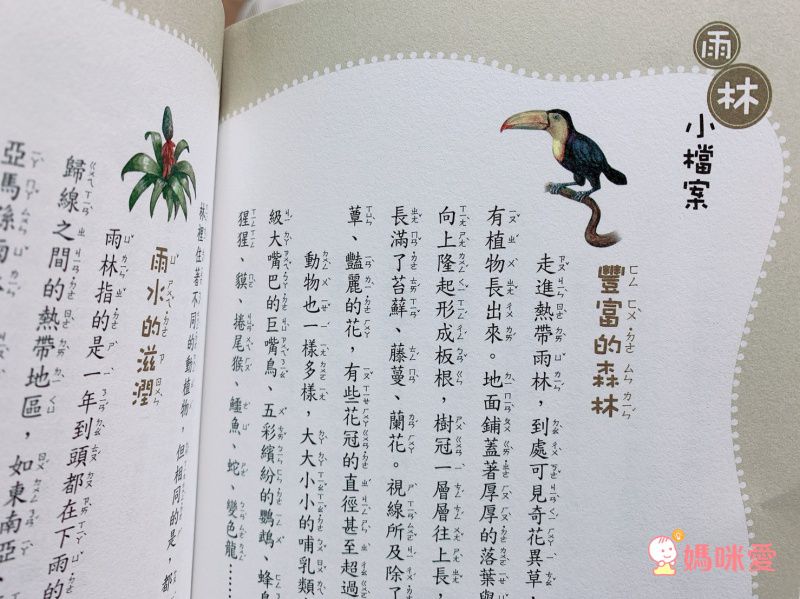 雨林
小檔案
豐富的森林
走進熱帶雨林，到處可見奇花異草，
有植物長出來。地面鋪蓋著厚厚的落葉與
向上隆起形成板根，樹冠一層層往上長，
長滿了苔蘚、藤蔓、蘭花。視線所及除了
蕈、豔麗的花，有些花冠的直徑甚至超過
動物也一樣多樣，大大小小的哺乳類
級大嘴巴的巨嘴鳥、五彩繽紛的鸚鵡、蜂鳥
猩猩、貘、捲尾猴、鱷魚、蛇、變色龍……
林裡住著不同的動植物，但相同的是，都
雨水的滋潤
雨林指的是一年到頭都在下雨的
歸線之間的熱帶地區，如東南亞、
亞馬遜雨
媽咪愛